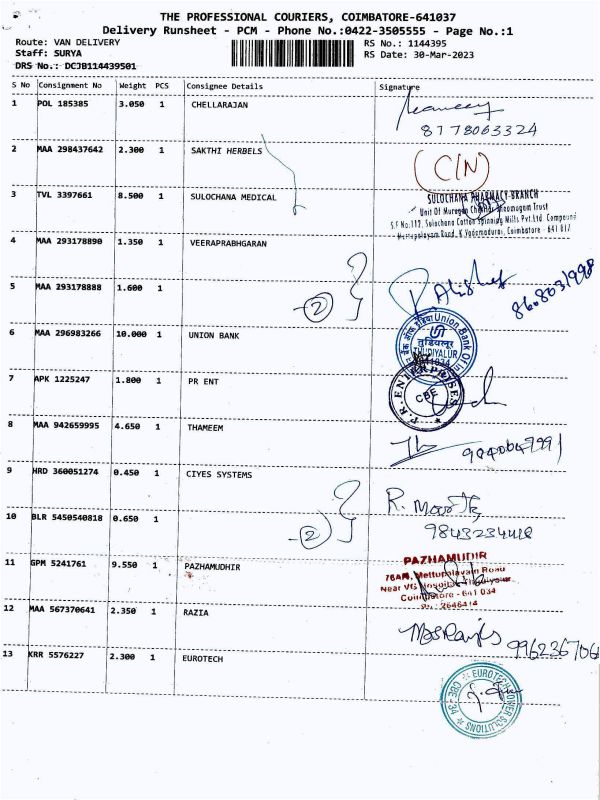 THE PROFESSIONAL COURIERS, COIMBATORE-641037
Delivery Runsheet - PCM - Phone No.:0422-3505555 - Page No.:1
Route: VAN DELIVERY
Staff: SURYA
DRS No.: DCJB114439501
RS No.: 1144395
RS Date: 30-Mar-2023
S No Consignment No Weight PCS Consignee Details Signature
1 POL 185385 3.050 1 CHELLARAJAN
8178063324
2 MAA 298437642 2.300 1 SAKTHI HERBELS
(C/N)
3 TVL 3397661 8.500 1 SULOCHANA MEDICAL
SULOCHANA PHARMACY-BRANCH
Unit Of Murugan Trust
S.F No:112, Sulochana Cotton Spinning Mills Pvt.Ltd Compound
Mettupalayam Road, K.Vadamadurai, Coimbatore - 641 017
4 MAA 293178890 1.350 1 VEERAPRABHGARAN
5 MAA 293178888 1.600 1
2
8608031998
6 MAA 296983266 10.000 1 UNION BANK
Union Bank Of In
तुडियलूर
THUDIYALUR
7 APK 1225247 1.800 1 PR ENT
P.R. ENTERPRISES
CBE
8 MAA 942659995 4.650 1 THAMEEM
9 HRD 360051274 0.450 1 CIYES SYSTEMS
R. Moorthy
10 BLR 5450540818 0.650 1
2
11 GPM 5241761 9.550 1 PAZHAMUDHIR
PAZHAMUDIR
76A/1, Mettupalayam Road
Near VG Hospital,
Coimbatore - 641 034
Ph: 2646414
12 MAA 567370641 2.350 1 RAZIA
996236706
13 KRR 5576227 2.300 1 EUROTECH
EUROTECH POWER SOLUTIONS
CBE-34